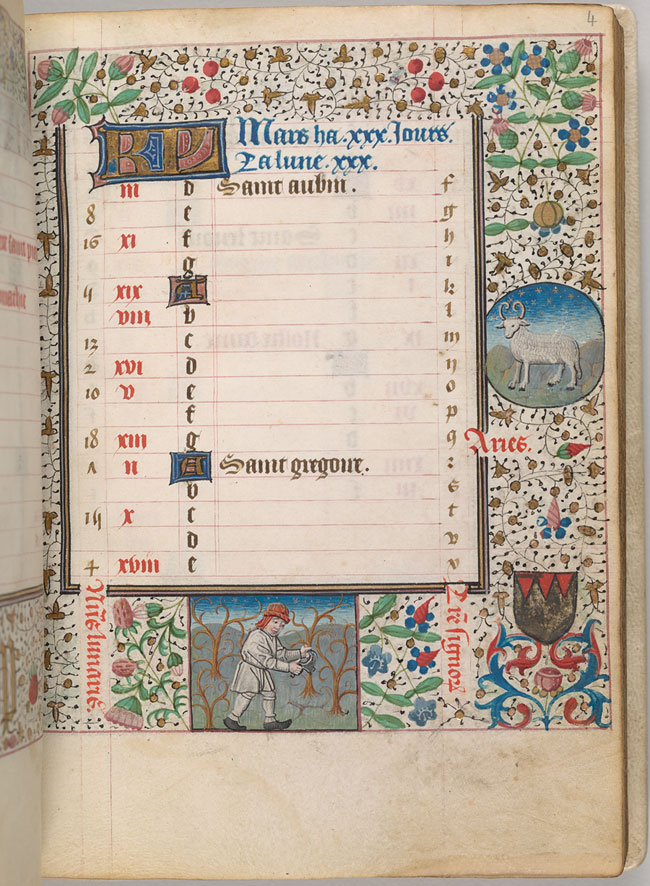 4
KL Mars ha .xxx. Jours.
La lune .xxx.
iii d Saint aubin. f
8 e g
16 xi f h
g i
5 xix A k
viii b l
13 c m
2 xvi d n
10 v e o
f p
18 xiii g q
Aries.
1 ii A Saint gregoire. r
b s
15 x c t
d v
4 xviii e v